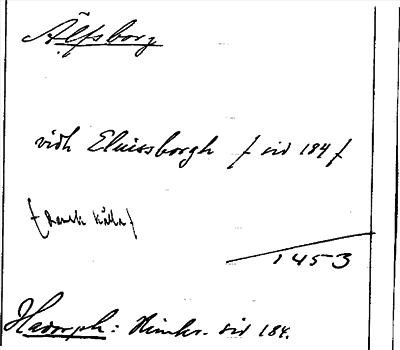 Älfsborg
vidh Eluissborgh / sid 184 /
/ Dansk källa /
1453
Hadorph: Rimkr. sid 184.